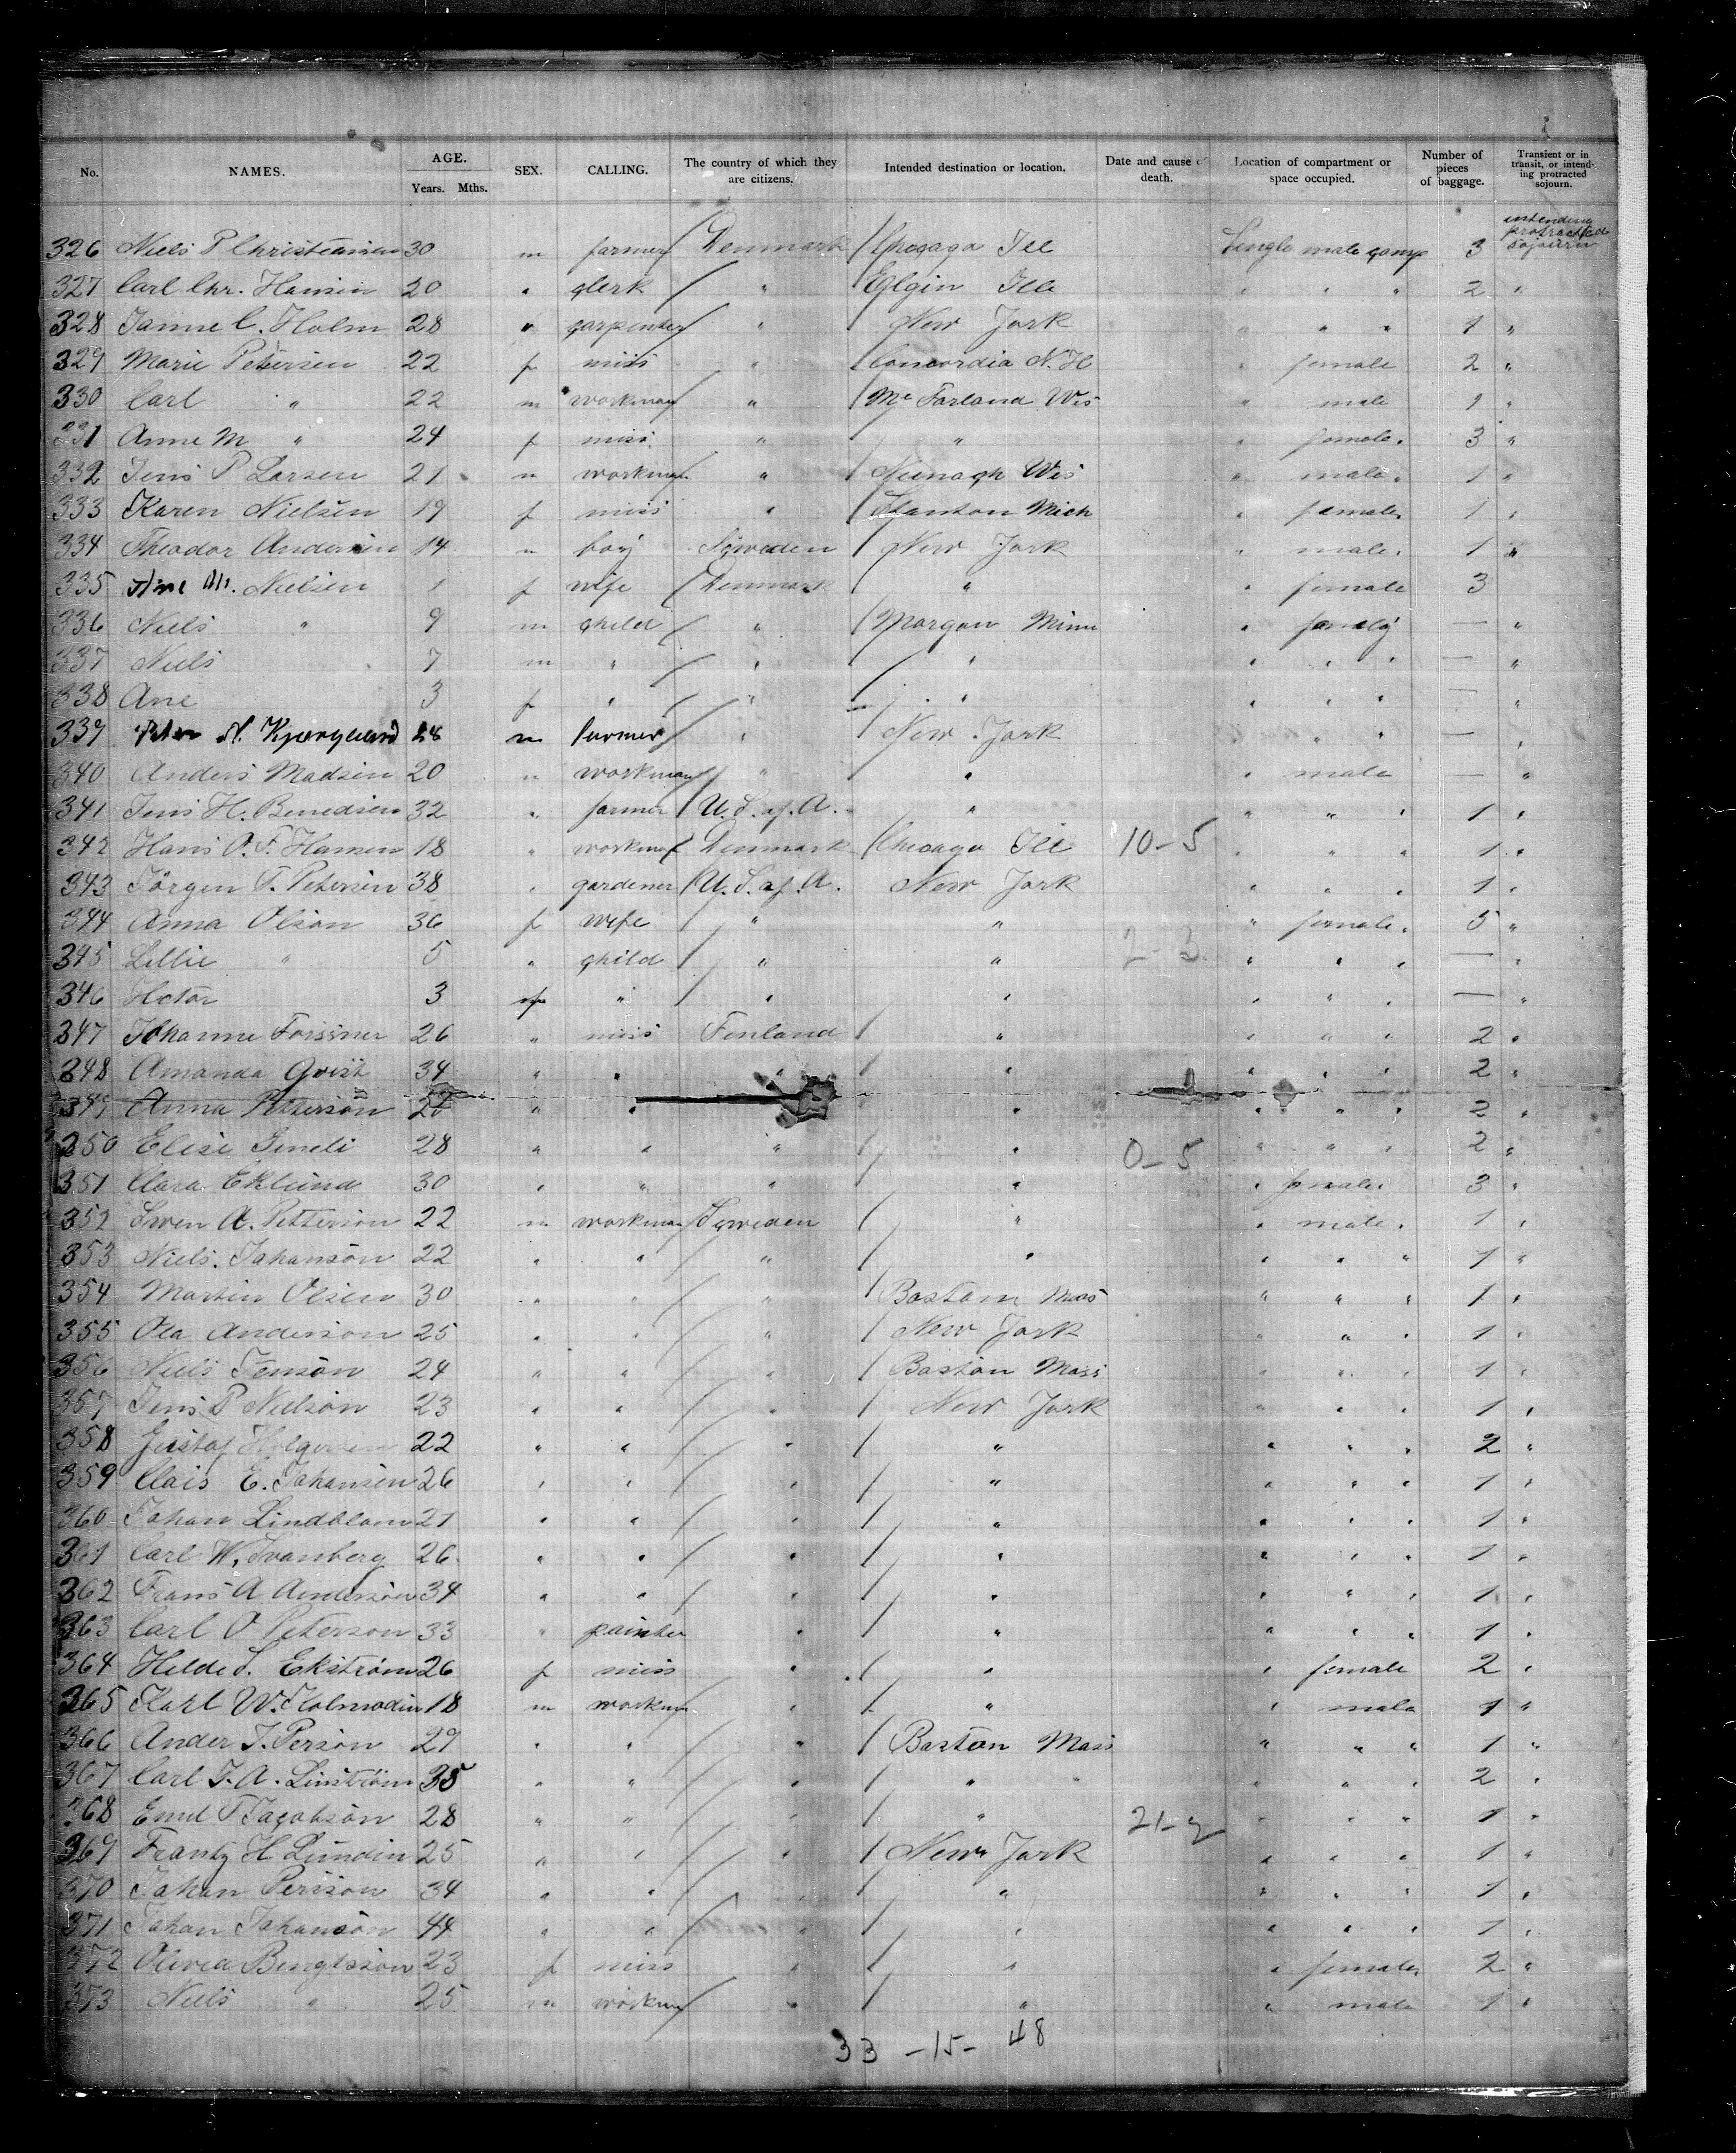 No. NAMES. AGE. Years. Mths. SEX. CALLING. The country of which they are citizens. Intended destination or location. Date and cause of death. Location of compartment or space occupied. Number of pieces of baggage. Transient or in transit, or intending protracted sojourn.
326 Niels P Christensen 30 m farmer Denmark Chocago Ill Single male comp 3 intending protracted sojourn
327 Carl Chr. Hansen 20 " clerk " Elgin Ill " " " 2 "
328 Janne C. Holm 28 " carpenter " New York " " " 1 "
329 Marie Petersen 22 f miss " Concordia N. H " female 2 "
330 Carl " 22 m workman " Mc Farland Wis " male 1 "
331 Anne M " 24 f miss " " " female 3 "
332 Jens P Larsen 21 m workman " Neenagh Wis " male 1 "
333 Karen Nielsen 19 f miss " Stanton Mich " female 1 "
334 Theodor Andersen 14 m boy Sweden New York " male 1 "
335 Ane M. Nielsen f wife Denmark " " female 3
336 Niels " 9 m child " Morgan Minn " family — "
337 Niels 7 m " " " " " " — "
338 Ane 3 f " " " " " " — "
339 Peter N. Kjærgaard 28 m farmer " New York " " " — "
340 Anders Madsen 20 " workman " " " male — "
341 Jens H. Benedsen 32 " farmer U. S. of. A. " " " " 1 "
342 Hans O. F. Hansen 18 " workman Denmark Chicago Ill 10-5 " " " 1 "
343 Jörgen F. Petersen 38 " gardener U. S. of. A. New York " " " 1 "
344 Anna Olson 36 f wife " " " female 5 "
345 Lillie " 5 " child " " 2-3 " " " — "
346 Hctor 3 " " " " " " — "
347 Johanne Forssner 26 " miss Finland " " " " 2 "
348 Amanda Qvist 34 " " " " " " " 2 "
349 Anna Petterson " " " " " " 2 "
350 Elise Simeli 28 " " " " 0-5 " " " 2 "
351 Clara Eklund 30 " " " " " female 3 "
352 Swen A. Petterson 22 m workman Sweden " " male 1 "
353 Niels. Johanson 22 " " " " " " " 1 "
354 Martin Olsen 30 " " " Bostom Mass " " " 1 "
355 Ola Anderson 25 " " " New York " " " 1 "
356 Niels Jenson 24 " " " Boston Mass " " " 1 "
357 Jens P Nielson 23 " " " New York " " " 1 "
358 Gustaf 22 " " " " " " " 2 "
359 Clais E. Johansen 26 " " " " " " " 1 "
360 Johan Lindblom 21 " " " " " " " 1 "
361 Carl W. Svanberg 26 " " " " " " " 1 "
362 Frans A Anderson 34 " " " " " " " 1 "
363 Carl O Peterson 33 " painter " " " " " 1 "
364 Hilde S. Ekström 26 f miss " " " female 2 "
365 Karl W. Holmodin 18 m workm " " " male 1 "
366 Ander J. Person 29 " " " Boston Mass " " " 1 "
367 Carl J. A. Linström 35 " " " " " " " " 2 "
368 Emil F Jacobson 28 " " " " 21-2 " " " 1 "
369 Frantz H Lundin 25 " " " New York " " " 1 "
370 Johan Persson 34 " " " " " " " 1 "
371 Johan Johanson 44 " " " " " " " 1 "
372 Olivia Bengtsson 23 f miss " " " female 2 "
373 Niels " 25 m workm " " " male 1 "
33 -15- 48